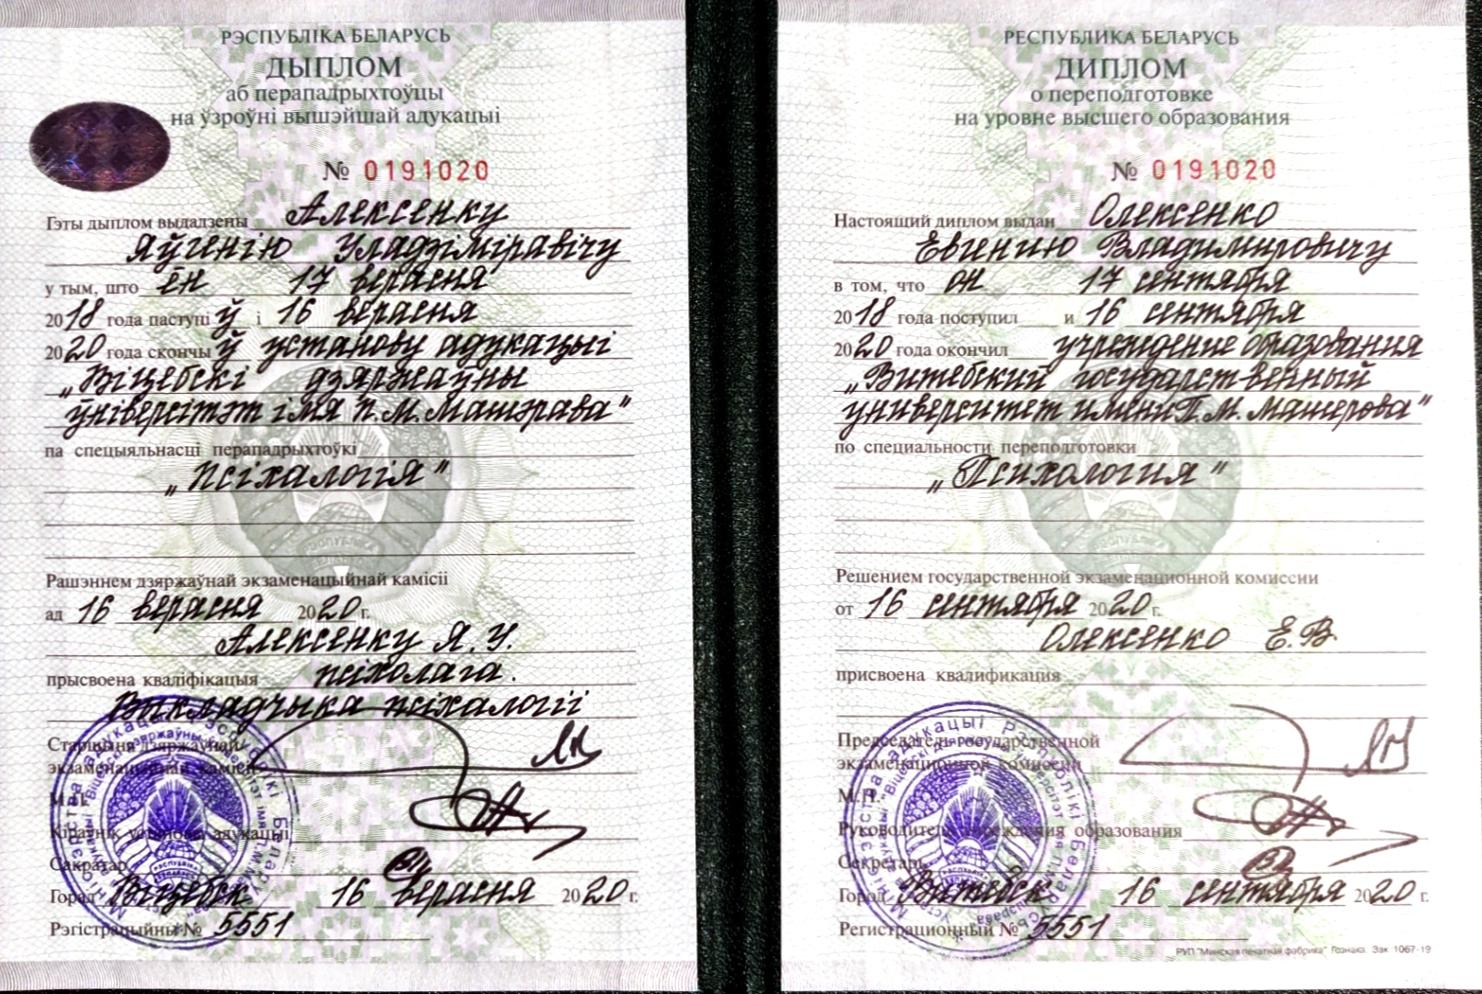 РЭСПУБЛІКА БЕЛАРУСЬ
ДЫПЛОМ
аб перападрыхтоўцы
на ўзроўні вышэйшай адукацыі
№ 0191020
Гэты дыплом выдадзены Алексенку
Яўгенію Уладзіміравічу
у тым, што ён 17 верасня
2018 года паступіў і 16 верасня
2020 года скончыў установу адукацыі
„Віцебскі дзяржаўны
ўніверсітэт імя П.М.Машэрава"
па спецыяльнасці перападрыхтоўкі
„Псіхалогія"
Рашэннем дзяржаўнай экзаменацыйнай камісіі
ад 16 верасня 2020 г.
Алексенку Я.У.
прысвоена кваліфікацыя псіхолага.
Выкладчыка псіхалогіі
Старшыня дзяржаўнай
экзаменацыйнай камісіі
М.П.
Кіраўнік установы адукацыі
Сакратар
Горад Віцебск 16 верасня 2020 г.
Рэгістрацыйны № 5551
РЕСПУБЛИКА БЕЛАРУСЬ
ДИПЛОМ
о переподготовке
на уровне высшего образования
№ 0191020
Настоящий диплом выдан Олексенко
Евгению Владимировичу
в том, что он 17 сентября
2018 года поступил и 16 сентября
2020 года окончил учреждение образования
„Витебский государственный
университет имени П.М.Машерова"
по специальности переподготовки
„Психология"
Решением государственной экзаменационной комиссии
от 16 сентября 2020 г.
Олексенко Е.В.
присвоена квалификация
Председатель государственной
экзаменационной комиссии
М.П.
Руководитель учреждения образования
Секретарь
Город Витебск 16 сентября 2020 г.
Регистрационный № 5551
РУП "Минская печатная фабрика" Гознака. Зак. 1067-19